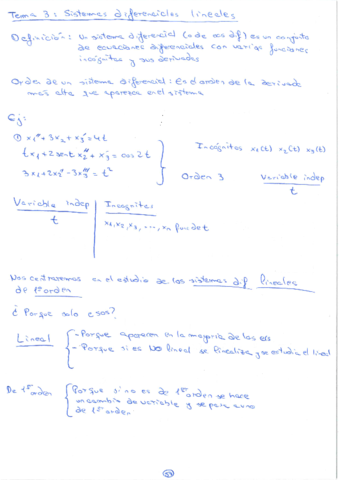 Tema 3: Sistemas diferenciales lineales
Definición: Un sistema diferencial (o de ecs dif) es un conjunto
de ecuaciones diferenciales con varias funciones
incógnitas y sus derivadas
Orden de un sistema diferencial: Es el orden de la derivada
más alta que aparezca en el sistema
Ej:
① x₁'' + 3x₂ + x₃' = 4t
tx₁ + 2sent x₂'' + x₃' = cos 2t
3x₁ + 2x₂' - 3x₃''' = t²
Incógnitas x₁(t) x₂(t) x₃(t)
Orden 3 Variable indep
t
Variable indep | Incógnitas
t | x₁, x₂, x₃, ..., xₙ fun de t
Nos centraremos en el estudio de los sistemas dif lineales
de 1er orden
¿Porque solo esos?
Lineal { - Porque aparecen en la mayoría de los
- Porque si es NO lineal se linealiza y se estudia el lineal
De 1er orden { Porque si no es de 1er orden se hace
un cambio de variable y se pasa a uno
de 1er orden